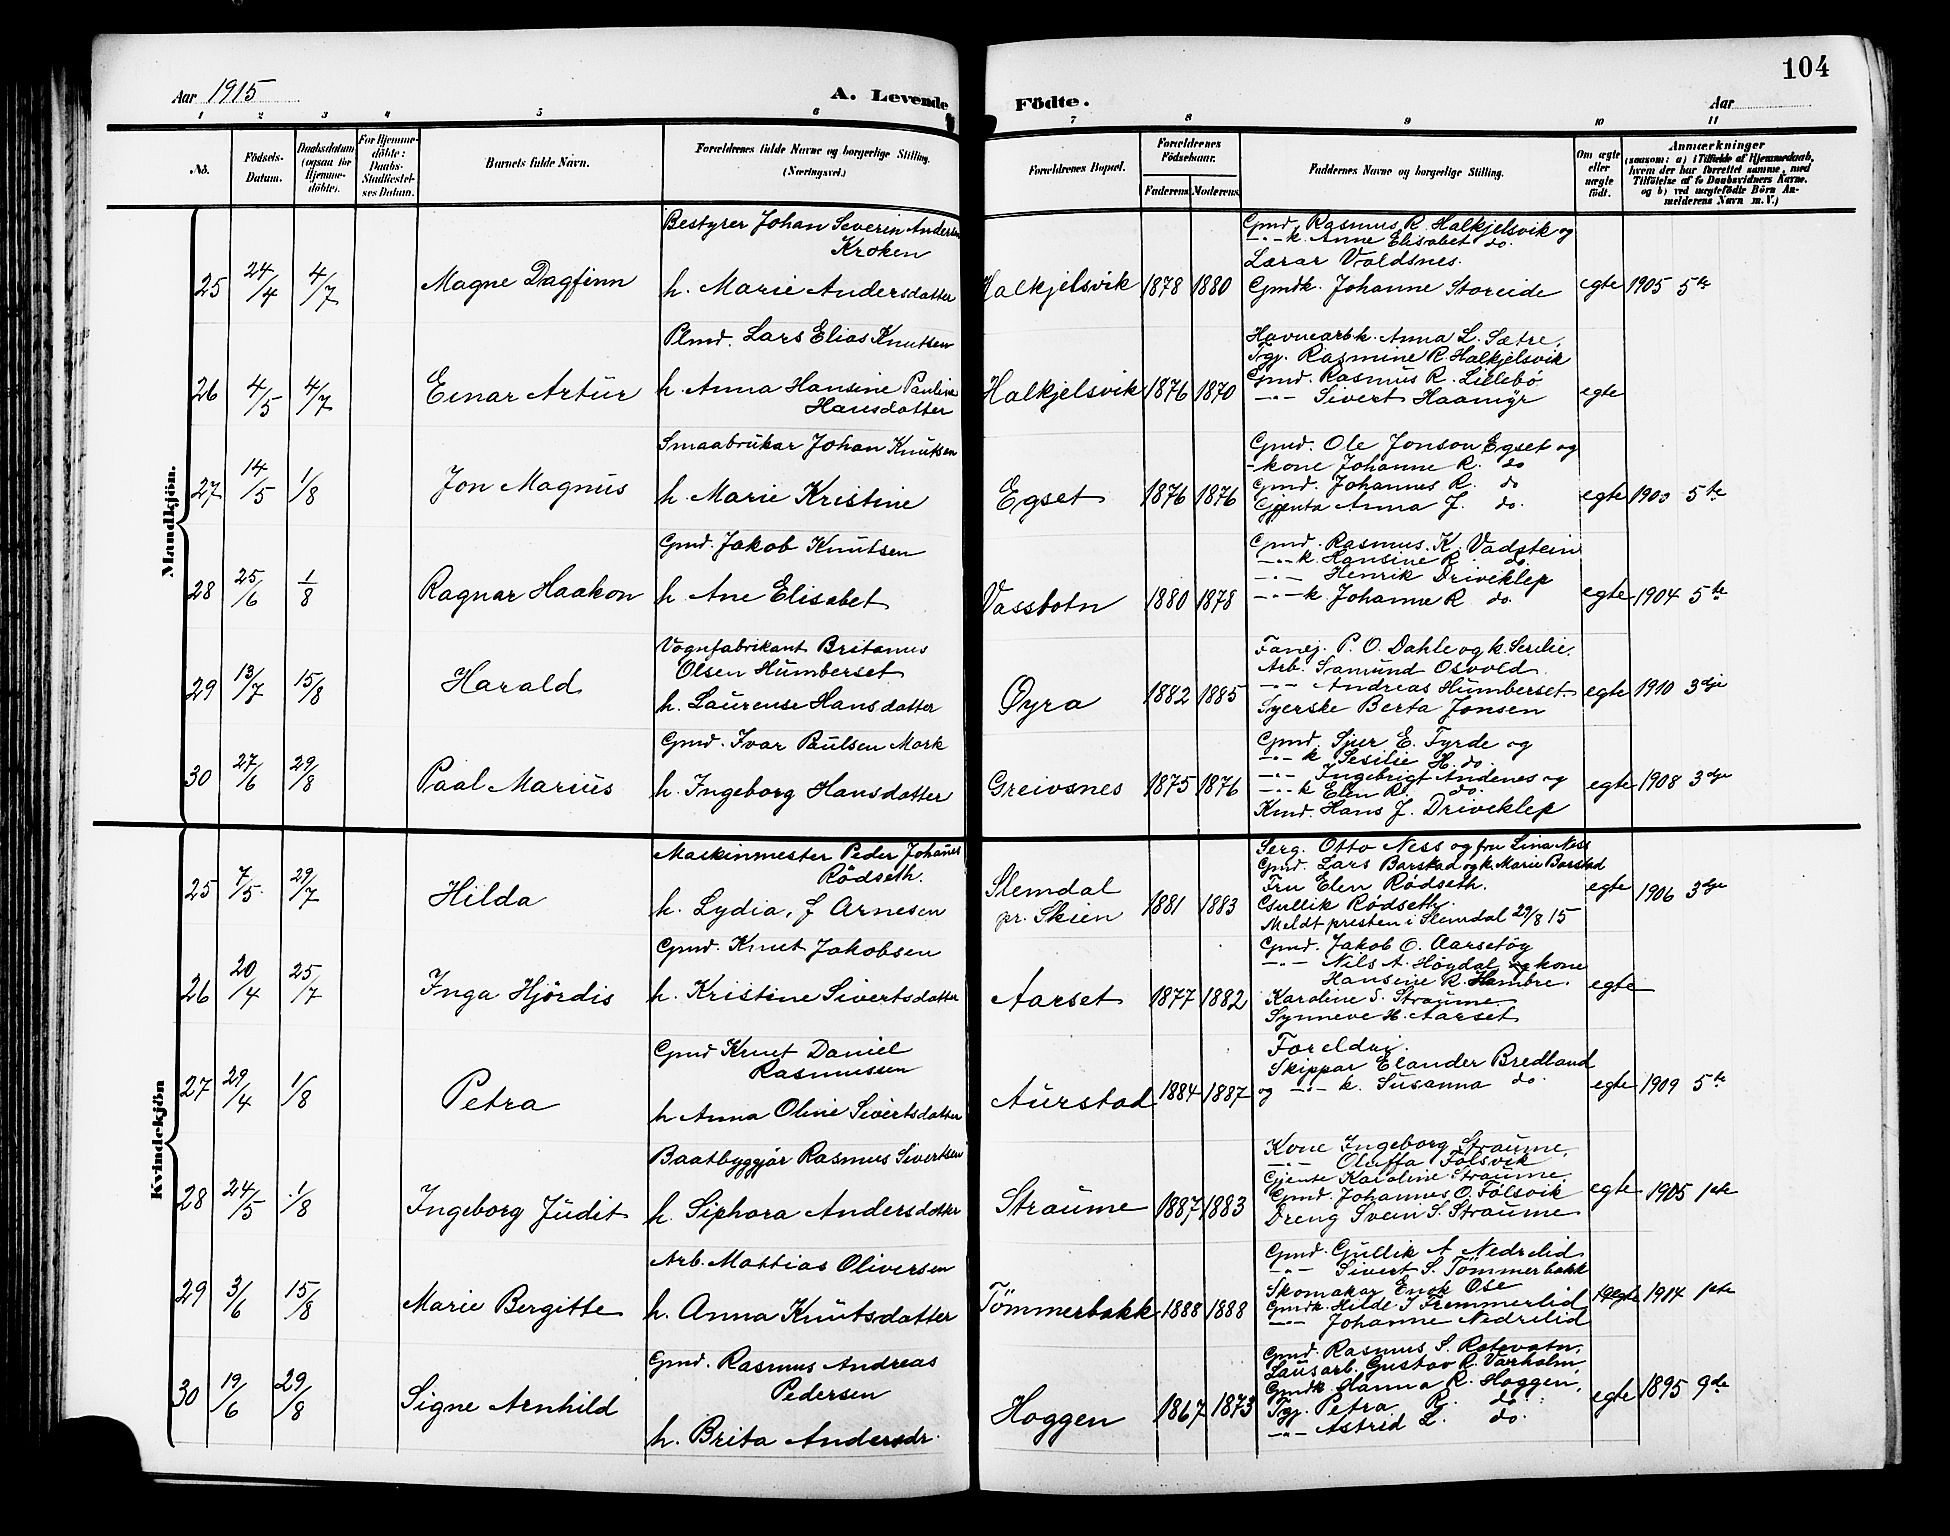 104
Aar 1915
A. Levende
Födte.
Aar
1 2 3 4 5 6 7 8 9 10 11
No.
Födsels-Datum.
Daabsdatum (ogsaa for Hjemme-döbte).
For Hjemme-döbte: Daabs-Stadfæstelses Datum.
Barnets fulde Navn.
Forældrenes fulde Navne og borgerlige Stilling. (Næringsvei.)
Forældrenes Bopæl.
Forældrenes Födselsaar.
Faderens. Moderens.
Faddernes Navne og borgerlige Stilling.
Om ægte eller uægte födt.
Anmærkninger
(saasom: a) i Tilfælde af Hjemmedaab, hvem der har forrettet samme, med Tilföielse af to Daabsvidners Navne. og b) ved uægtefödte Börn Anmelderens Navn m. V.)
Mandkjön.
Bestyrer Johan Severin Andersen
Kroken
25 24/4 4/7 Magne Dagfinn h. Marie Andersdatter Halkjelsvik 1878 1880
Gmd. Rasmus R. Halkjelsvik og
-"- k. Anne Elisabet do.
Lærar Valdsnes.
Gmdk. Johanne Storeide egte 1905 5te
Plmd. Lars Elias Knutsen
26 4/5 4/7 Einar Artur h. Anna Hansine Pauline
Hansdatter
Halkjelsvik 1876 1870
Havnearb.k. Anna L. Sætre,
Tgj. Rasmine R. Halkjelsvik
Gmd. Rasmus R. Lillebö
-"- Sivert Haamyr egte
Smaabrukar Johan Knutsen
27 14/5 1/8 Jon Magnus h. Marie Kristine Egset 1876 1876
Gmd. Ole Jonson Egset og
-kone Johanne R. do
Gmd. Johannes R. do
Gjenta Anna J. do. egte 1900 5te
Gmd. Jakob Knutsen
28 25/6 1/8 Ragnar Haakon h. Ane Elisabet Vassbotn 1880 1878
Gmd. Rasmus K. Vadstein
-"- k. Hansine R. do.
-"- Henrik Driveklep
-"- k. Johanne R. do. egte 1904 5te
Vognfabrikant Britanus
Olsen Humberset
29 13/7 15/8 Harald h. Laurense Hansdatter Øyra 1882 1885
Fanej. P. O. Dahle og k. Sesilie.
Arb. Samund Osvold
-"- Andreas Humberset.
Syerske Berta Jonsen egte 1910 3dje
Gmd. Ivar Paulsen Mork
30 27/6 29/8 Paal Marius h. Ingeborg Hansdatter Greivsnes 1875 1876
Gmd. Sjur E. Fyrde og
-"- k Sesilie H. do.
-"- Ingebrigt Andenes og
-"- k Elen R. do.
Kmd. Hans J. Driveklep egte 1908 3dje
Kvindekjön
Maskinmester Peder Johanes
Rödseth.
25 7/5 29/7 Hilda h. Lydia, f Arnesen
Slemdal
pr. Skien 1881 1883
Serg. Otto Ness og fru Lina Ness
Gmd. Lars Barstad og k. Marie Barstad
Fru Elen Rödseth.
Gullik Rödseth.
Meldt presten i Slemdal 29/8 15 egte 1906 3dje
Gmd. Knut Jakobsen
26 20/4 25/7 Inga Hjördis h. Kristine Sivertsdatter Aarset 1877 1882
Gmd. Jakob O. Aarsetöy
-"- Nils A. Höydal og kone
Hansine R. Hambre.
Karoline S. Straume.
Synneve H. Aarset egte
Gmd Knut Daniel
Rasmussen
27 29/4 1/8 Petra h Anna Oline Sivertsdatter Aurstad 1884 1887
Foreldri.
Skippar Elander Bredland
og -"- k. Susanna do. egte 1909 5te
Baatbyggjar Rasmus Sivertsen
28 24/5 1/8 Ingeborg Judit h. Siphora Andersdatter Straume 1887 1883
Kone Ingeborg Straume,
-"- Oluffa Fölsvik
Gjente Karoline Straume.
Gmd. Johannes O. Fölsvik
Dreng Svein S. Straume egte 1905 1ste
Arb. Mattias Oliversen
29 3/6 15/8 Marie Bergitte h. Anna Knutsdatter Tömmerbakk 1888 1888
Gmd. Gullik A Nedrelid
-"- Sivert S. Tömmerbakk
Skomakar Enok Ose
Gmdk. Hilde I Fremmerlid
-"- Johanne Nedrelid egte 1914 1ste
Gmd. Rasmus Andreas
Pedersen
30 19/6 29/8 Signe Arnhild h. Brita Andersdr. Hoggen 1867 1873
Gmd. Rasmus S. Rotevatn,
Lausarb. Gustav R. Varholm,
Gmdk. Hanna R. Hoggen,
Tgj. Petra R. do.
-"- Astrid L. do. egte 1895 9de